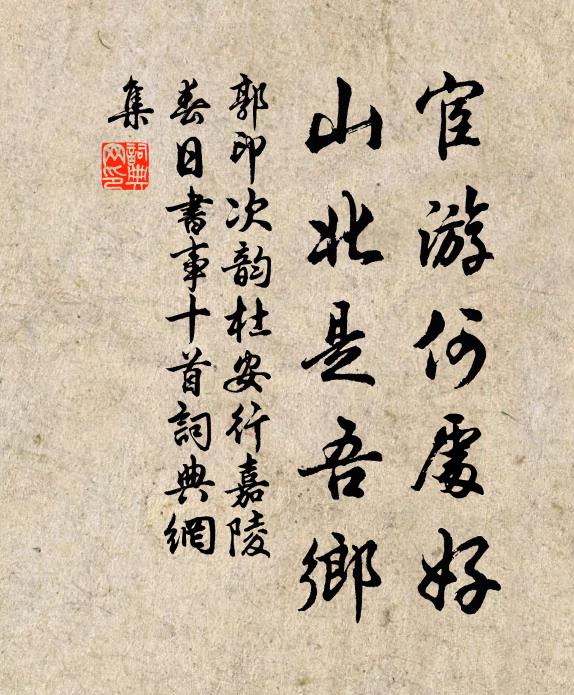 宦游何處好
山北是吾鄉
郭印次韵杜安行嘉陵
春日書事十首詞典網
集
詞典
网印